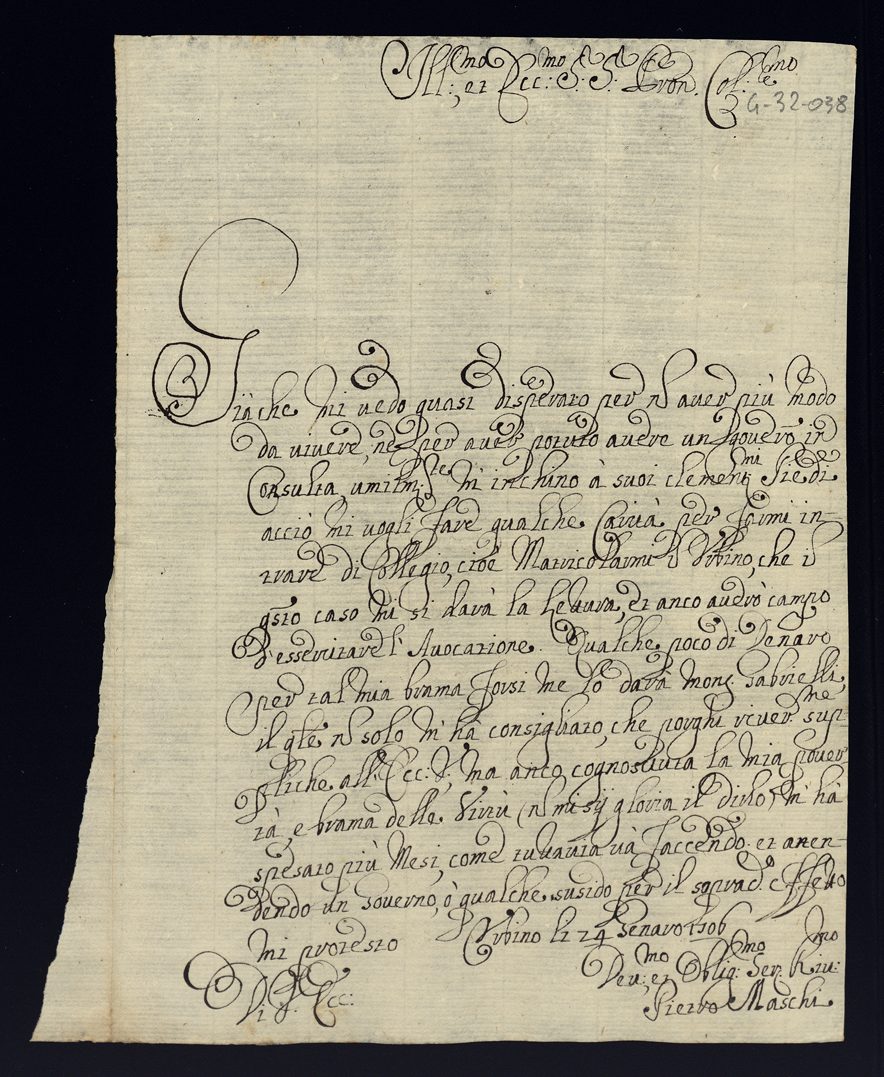 Ill:mo et Ecc:mo S: S: Pron. Col:mo
G-32-038
Giàche mi vedo quasi disperato per n aver più modo
da vivere, ne per aver potuto avere un governo in
Consulta, umilm:te m'inchino à suoi clementmi Piedi
acciò mi vogli fare qualche Carità per farmi in-
trare di Collegio, cioè Matricolarmi i Urbino, che i
qsto caso mi si darà la lettura, et anco averò campo
d'essercitare l'Avocazione. Qualche poco di Denaro
per tal mia brama forsi me lo darà mons. Gabrielli,
il qle n solo m'hà consigliato, che porghi river:me sup-
pliche all'Ecc: V:, ma anco cognosciuta la mia pover-
tà, e brama delle Virtù (n mi sij gloria il dirlo) m'hà
spesato più Mesi, come tuttavia và faccendo. et atten-
dendo un Governo, ò qualche susidio per il soprad.o effetto
mi protesto
Urbino li 24 Genaro 1706
Di V. Ecc:
Dev:mo et Oblig:mo Ser. Riv:mo
Pietro Maschi